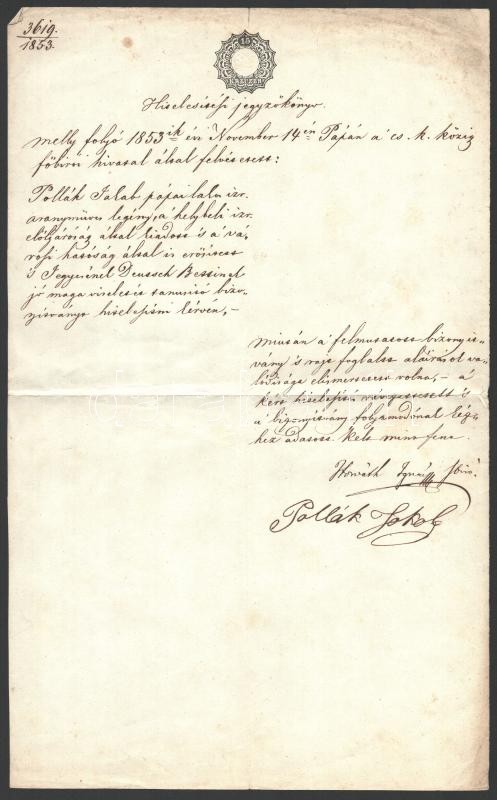 3619.
1853.
15
Hitelesitési jegyzőkönyv.
melly folyó 1853ik évi November 14én Pápán a' cs. k. közig
főbirói hivatal által felvétetett:
Pollák Jakab pápai lakos izr.
aranymüves legény, a' helybeli izr.
elöljáróság által kiadott s a' vá-
rosi hatóság által is erősitett
's Jegyesénel Deutsch Bettinek
jó maga viseletét tanusitó bizo-
nyitványt hitelesitni kérvén, –
miután a' felmutatott bizonyit-
vány 's rajt foglalt aláirások va-
lódisága elismertetett volna, – a'
kért hitelesités rávezettetett 's
a' bizonyitvány folyamodónak kéz-
hez adatott. Kelt mint fent.
Horváth Ignátz
Pollák Jakab